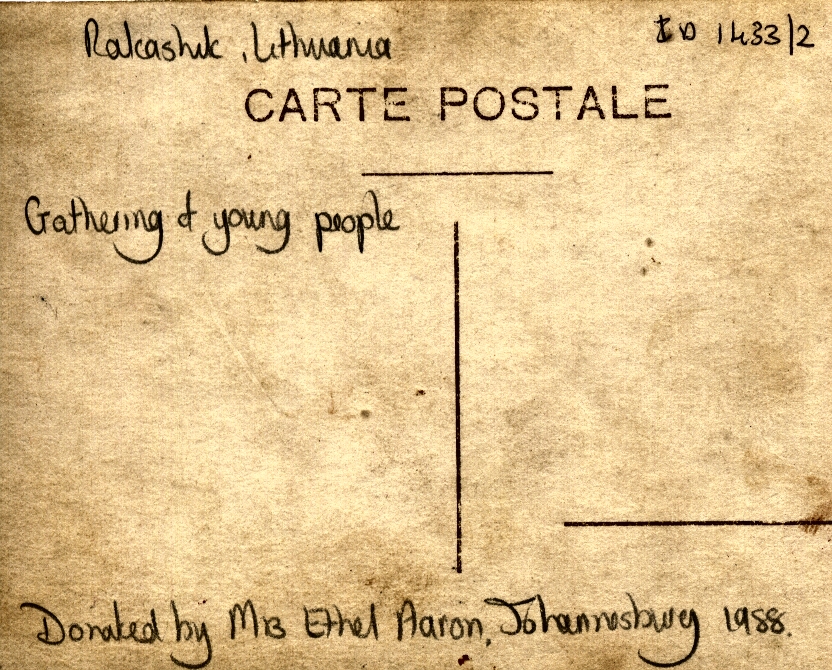 Rakashik, Lithuania
ID 1433/2
CARTE POSTALE
Gathering of young people
Donated by Mrs Ethel Aaron, Johannesburg 1988.